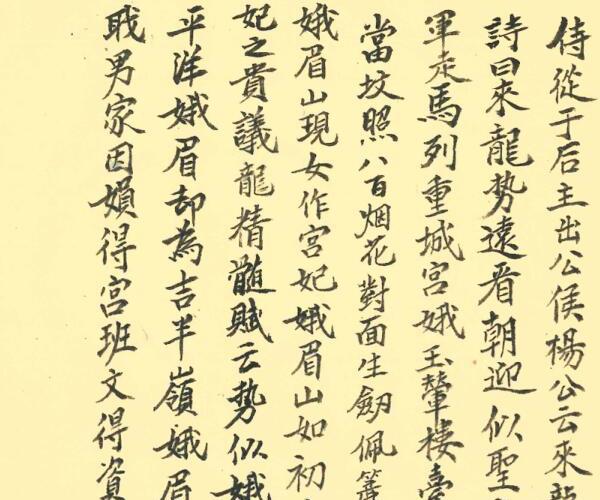 侍從于后主出公侯楊公云來龍
詩曰來龍勢遠看朝迎似聖
軍走馬列重城宮娥玉輦樓臺
當坟照八百烟花對面生劔佩
娥眉山現女作宮妃娥眉山如初
妃之貴議龍精髓賦云势似娥
平洋娥眉却為吉半嶺娥眉
戝男家因媍得宮班文得資